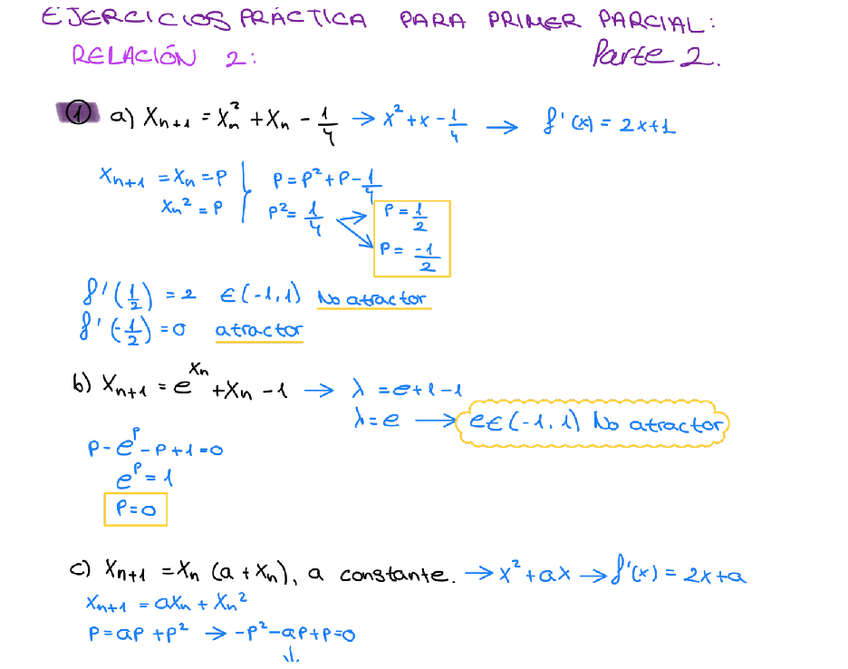 EJERCICIOS PRÁCTICA PARA PRIMER PARCIAL:
RELACIÓN 2: Parte 2.
① a) Xn+1 = Xn² + Xn - 1/4 → x² + x - 1/4 → f'(x) = 2x+1
Xn+1 = Xn = P } P = P² + P - 1/4
Xn² = P } P² = 1/4 → P = 1/2
P = -1/2
f'(1/2) = 2 ∈ (-1,1) No atractor
f'(-1/2) = 0 atractor
b) Xn+1 = e^Xn + Xn - 1 → λ = e+1-1
λ = e → e ∈ (-1,1) No atractor
P - e^P - P + 1 = 0
e^P = 1
P = 0
c) Xn+1 = Xn (a + Xn), a constante. → x² + ax → f'(x) = 2x+a
Xn+1 = aXn + Xn²
P = aP + P² → -P² - aP + P = 0
↓